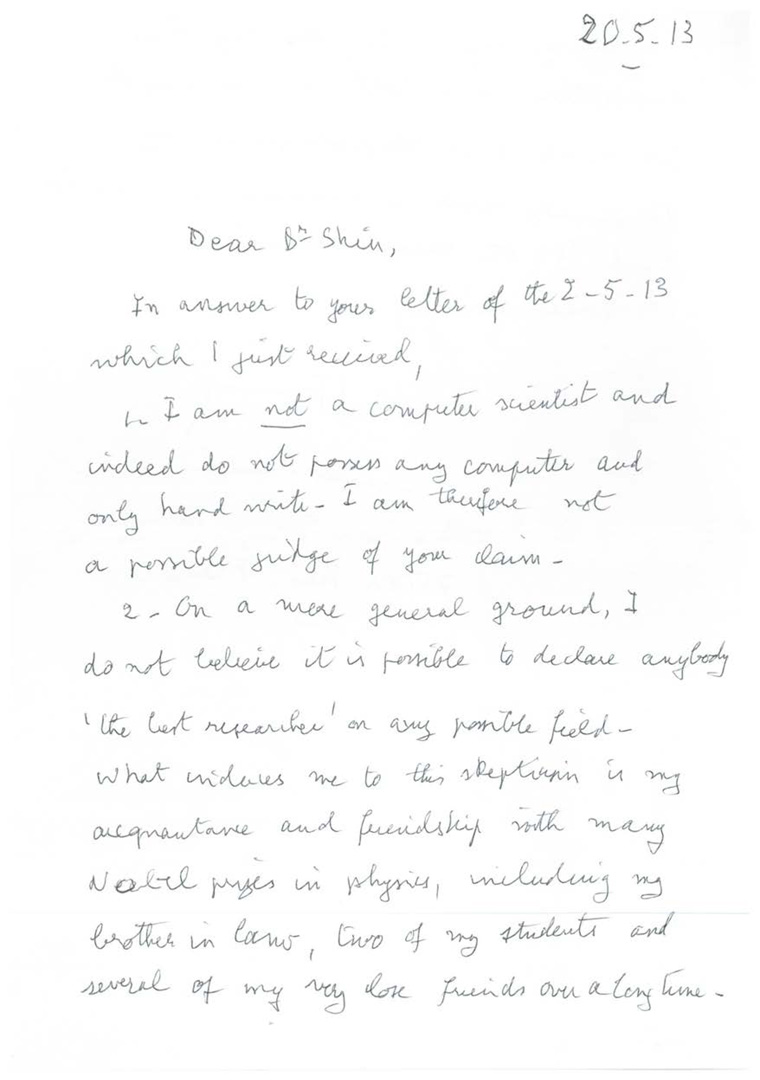 20.5.13
Dear Dr Shin,
In answer to your letter of the 2-5-13
which I just received,
1- I am not a computer scientist and
indeed do not possess any computer and
only hand write - I am therefore not
a possible judge of your claim -
2 - On a more general ground, I
do not believe it is possible to declare anybody
'the best researcher' on any possible field -
What induces me to this skepticism is my
acqnantance and friendship with many
Nobel prizes in physics, including my
brother in law, two of my students and
several of my very close friends over a long time -